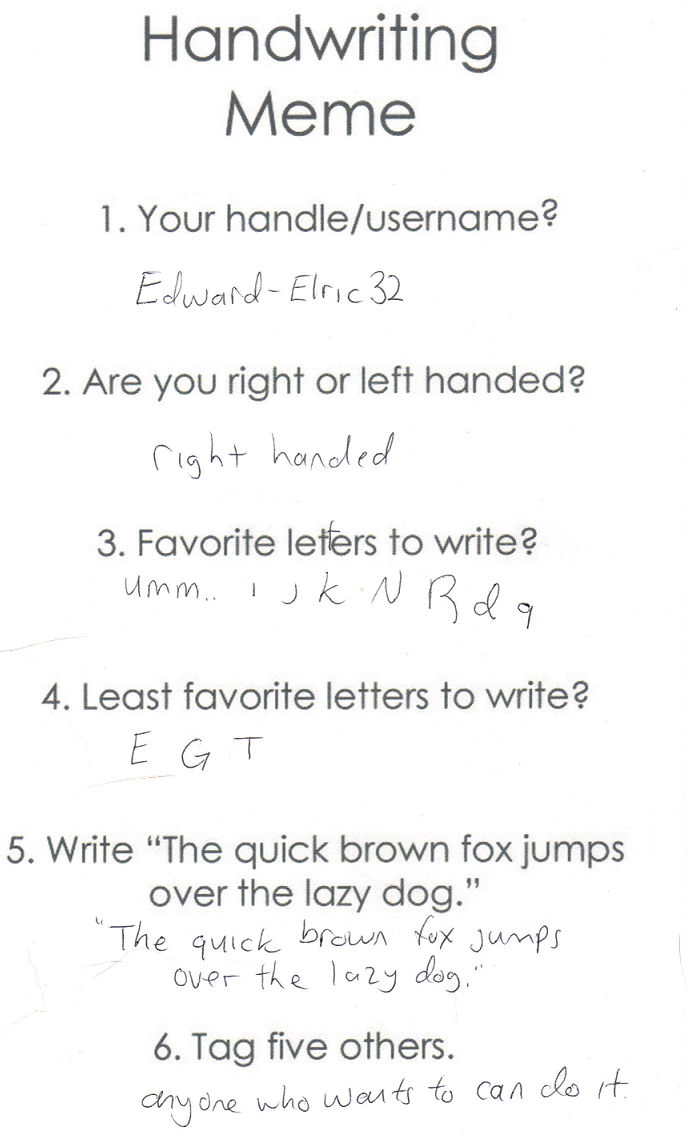 Handwriting
Meme
1. Your handle/username?
Edward-Elric32
2. Are you right or left handed?
right handed
3. Favorite letters to write?
umm.. i j k N R d q
4. Least favorite letters to write?
E G T
5. Write “The quick brown fox jumps
over the lazy dog.”
"The quick brown fox jumps
over the lazy dog."
6. Tag five others.
anyone who wants to can do it.